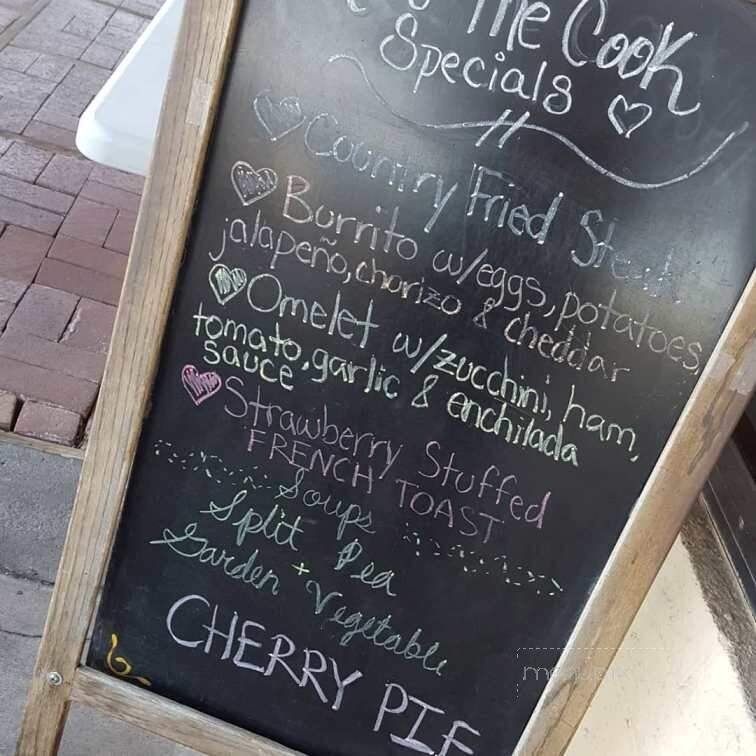 The Cook
Specials
Country Fried Steak
Burrito w/eggs, potatoes,
jalapeño, chorizo & cheddar
Omelet w/zucchini, ham,
tomato, garlic & enchilada
sauce
Strawberry Stuffed
FRENCH TOAST
Soups
Split Pea
+
Garden Vegetable
CHERRY PIE